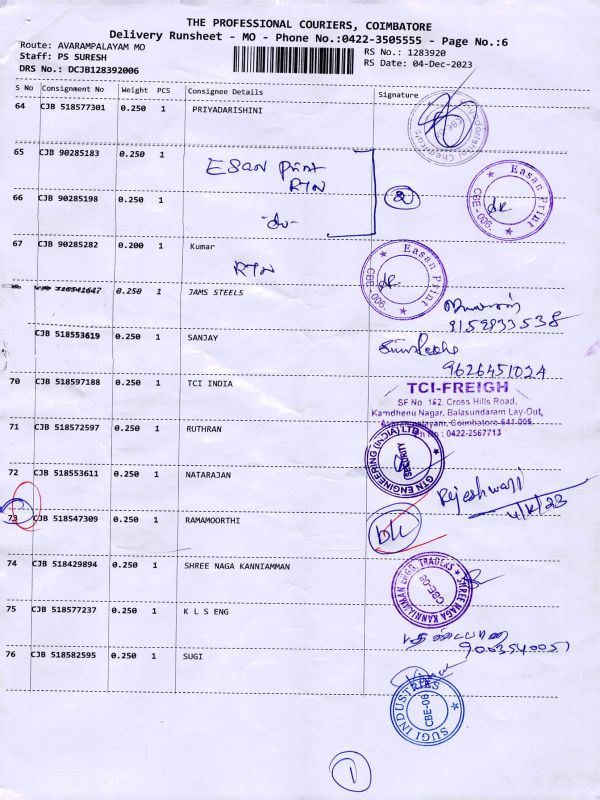 THE PROFESSIONAL COURIERS, COIMBATORE
Delivery Runsheet - MO - Phone No.:0422-3505555 - Page No.:6
Route: AVARAMPALAYAM MO
RS No.: 1283920
Staff: PS SURESH
RS Date: 04-Dec-2023
DRS No.: DCJB128392006
S No Consignment No Weight PCS Consignee Details Signature
64 CJB 518577301 0.250 1 PRIYADARISHINI
65 CJB 90285183 0.250 1
Esan Print
RTN
66 CJB 90285198 0.250 1
2
Easan Print
CBE-006.
67 CJB 90285282 0.200 1 Kumar
RTN
Easan Print
CBE-006.
0.250 1 JAMS STEELS
9159833538
CJB 518553619 0.250 1 SANJAY
9626451024
70 CJB 518597188 0.250 1 TCI INDIA
TCI-FREIGH
SF No 162, Cross Hills Road,
Kamdhenu Nagar, Balasundaram Lay-Out,
Avarampalayam, Coimbatore-641 006.
Ph No : 0422-2567713
71 CJB 518572597 0.250 1 RUTHRAN
GTN ENGINEERING (INDIA) LTD
SECURITY
72 CJB 518553611 0.250 1 NATARAJAN
Rajeshwari
73 CJB 518547309 0.250 1 RAMAMOORTHI
D/L
74 CJB 518429894 0.250 1 SHREE NAGA KANNIAMMAN
SHREE NAGA KANNIAMMAN ENGG. TRADERS
CBE-06
75 CJB 518577237 0.250 1 K L S ENG
9003540051
76 CJB 518582595 0.250 1 SUGI
SUGI INDUSTRIES
CBE-06
1